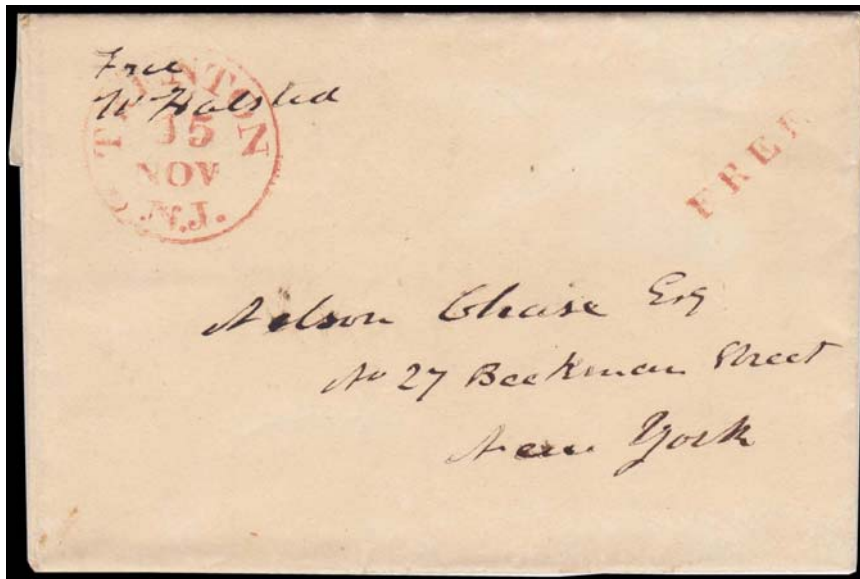 Free
W Halsted
TRENTON
15
NOV
N.J.
FREE
Nelson Chase Esq
No 27 Beekman Street
New York